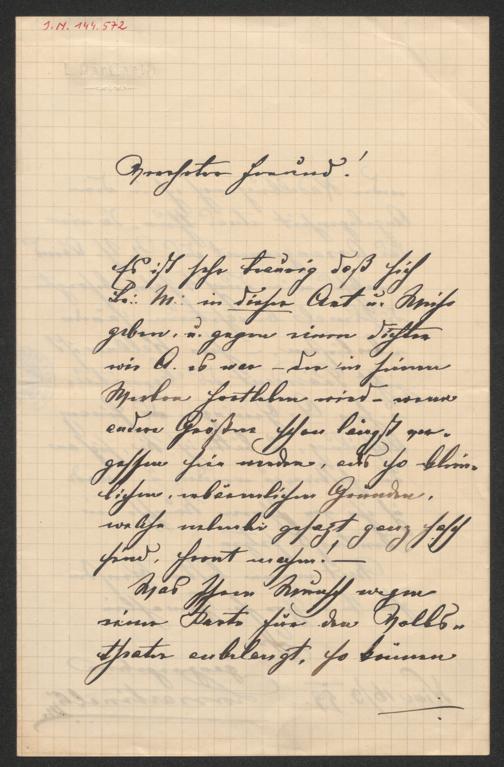 I.N. 144.572
Verehrter Freund!
Es ist sehr traurig daß sich
Br∴ M∴ in dieser Art u. Weise
geben, u. gegen einen Dichter
wie A. es war – der in seinen
Werken fortleben wird – wenn
andere Größen schon längst ver-
gessen sein werden, aus so klein-
lichen, erbärmlichen Gründen,
welche nebenbei gesagt ganz falsch
sind, Front machen! –
Was Ihren Wunsch wegen
einer Karte für das Volks-
theater anbelangt, so können